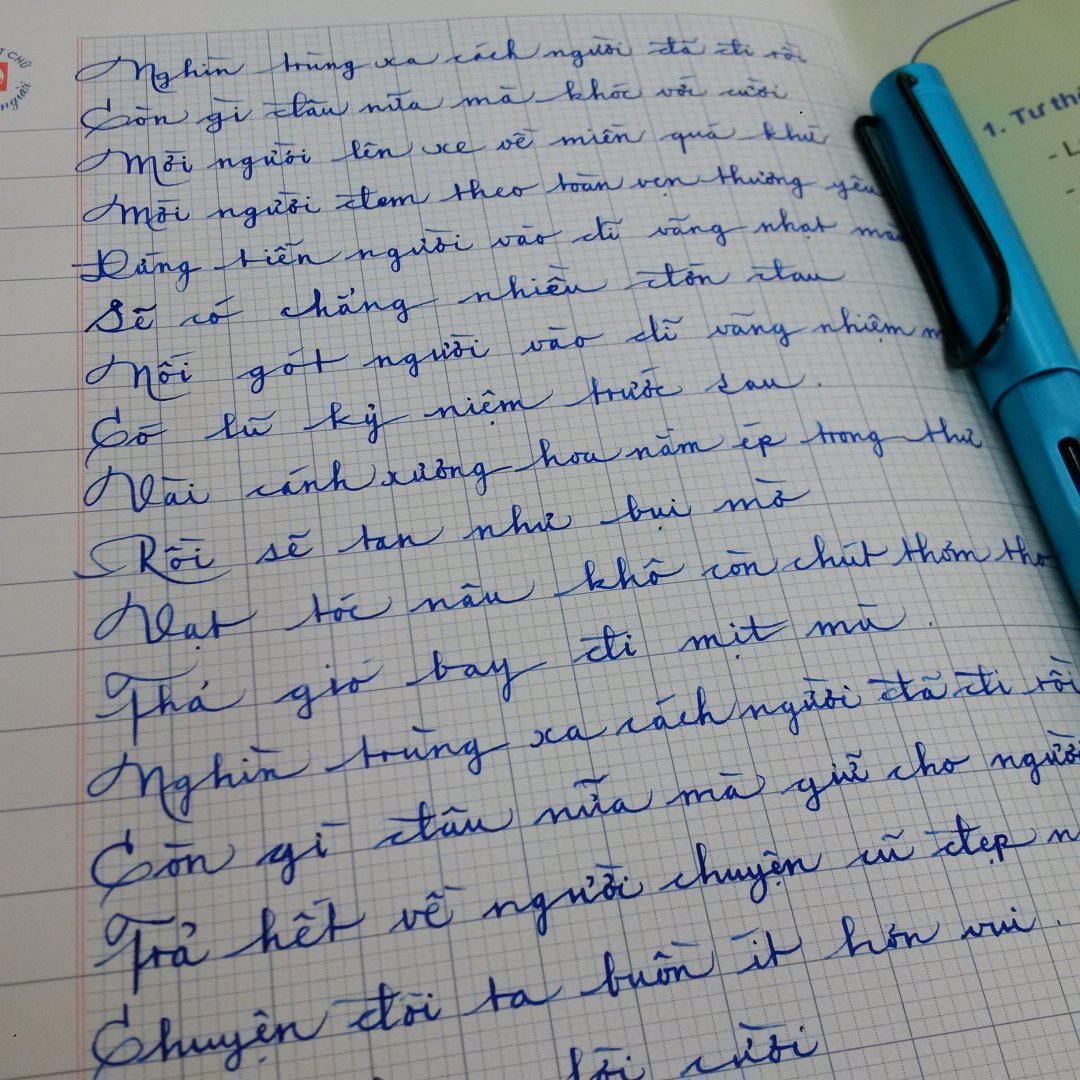 Nghìn trùng xa cách người đã đi rồi
Còn gì đâu nữa mà khóc với cười
Mời người lên xe về miền quá khứ
Mời người đem theo toàn vẹn thương yêu
Đứng tiễn người vào dĩ vãng nhạt
Sẽ có chẳng nhiều đớn đau
Nối gót người vào dĩ vãng nhiệm
Có lũ kỷ niệm trước sau.
Vài cánh xương hoa nằm ép trong thư
Rồi sẽ tan như bụi mờ
Vạt tóc nâu khô còn chút thơm
Thả gió bay đi mịt mù.
Nghìn trùng xa cách người đã đi rồi
Còn gì đâu nữa mà giữ cho người
Trả hết về người chuyện cũ đẹp
Chuyện đôi ta buồn ít hơn vui.
lời cười
1. Tư thế